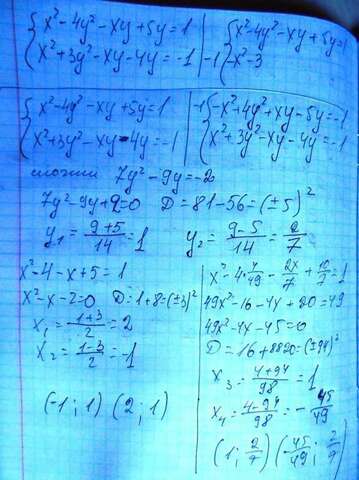 {x²-4y²-xy+5y=1 | {x²-4y²-xy+5y=1
{x²+3y²-xy-4y=-1 |-1 {-x²-3
{x²-4y²-xy+5y=1
{x²+3y²-xy-4y=-1
-1 {-x²+4y²+xy-5y=-1
{x²+3y²-xy-4y=-1
сложим 7y²-9y=-2
7y²-9y+2=0 D=81-56=(±5)²
y₁=(9+5)/14=1 y₂=(9-5)/14=2/7
x²-4-x+5=1
x²-x-2=0 D=1+8=(±3)²
x₁=(1+3)/2=2
x₂=(1-3)/2=-1
(-1;1) (2;1)
x²-4·4/49-2x/7+10/7=1
49x²-16-4x+20=49
49x²-4x-45=0
D=16+8820=(±94)²
x₃=(4+94)/98=1
x₄=(4-94)/98=-45/49
(1;2/7) (-45/49;2/7)